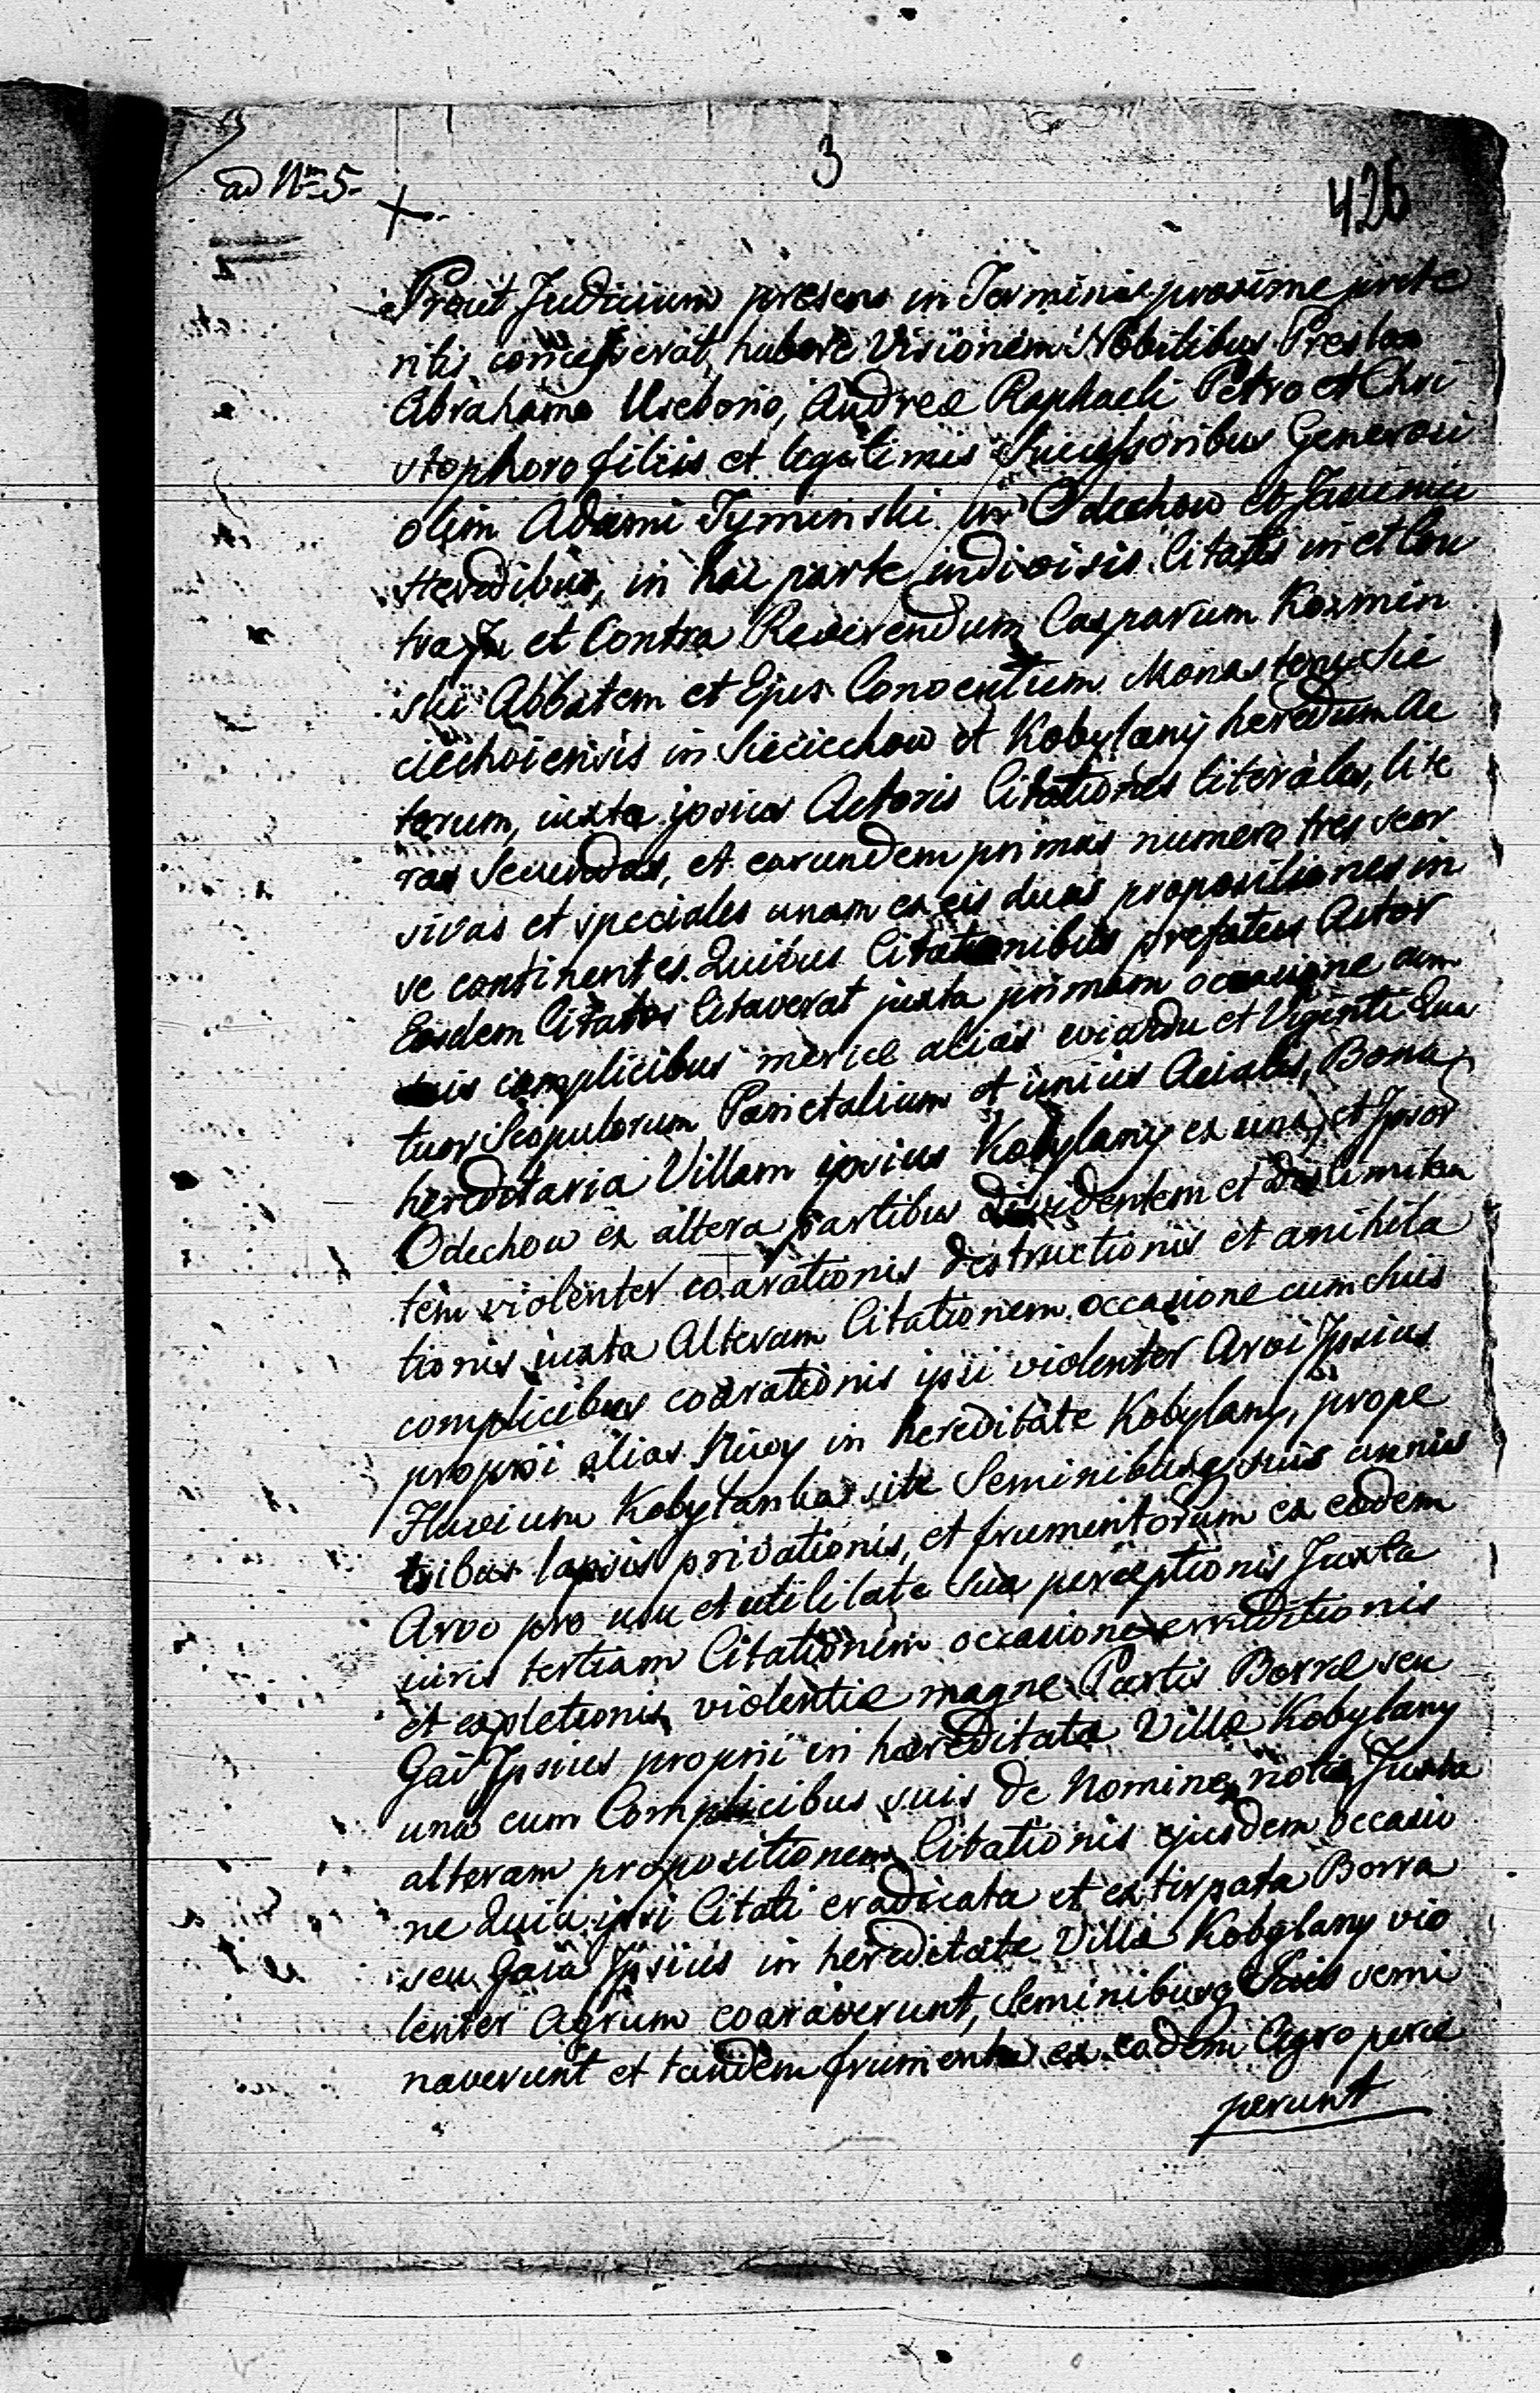 3
ad Nm 5.
426
Prout Judicium presens in Terminis proxime prete
ritis concesserat, habere Visionem Nobilibus
Abrahamo Andreæ Raphaeli Petro et Chri
stophoro filiis et legitimis Successoribus Generosi
olim Adami Tyminski in Odechow et
Heredibus, in hac parte indivisis Citatis in et Con
tra et Contra Reverendum Casparum Kozmin
ski Abbatem et Ejus Conventum Monastery Sie
ciechoiensis in Sieciechow et Kobylany heredum Ac
torum, iuxta ipsius Actoris Citationes literales, lite
ras Secundas, et earundem primas numero tres seor
sivas et speciales unam ex eis duas propositiones in
se continentes. Quibus Citationibus prefatus Actor
Eosdem Citatos Citaverat juxta primam occasione cum
suis complicibus mericæ alias wiardu et Viginti Qua
tuor Scopulorum Parietalium et unius Acialis, Bona
hereditaria Villam ipsius Kobylany ex una, et Ipsor
Odechow ex altera partibus dividentem et dislimitan
tem violenter coarationis destructionis et anihila
tionis iuxta Alteram Citationem occasione cum Suis
complicibus coarationis ipsi violenter Arvi Ipsius
proprii alias Niwy in hereditate Kobylany, prope
Fluvium Kobylanka site Seminibusq suis annis
tribus lapsis privationis, et frumentorum ex eodem
Arvo pro usu et utilitate sua perceptionis Juxta
iuris tertiam Citationem occasione erruditionis
et expletionis violentiæ magne Partis Borræ seu
Gaii Ipsius proprii in hæreditate Villæ Kobylany
una cum Complicibus suis de Nomine notis, Juxta
alteram propositionem Citationis ejusdem occasio
ne Quia ipsi Citati eradicata et extirpata Borra
seu Gaia Ipsius in hereditate Villæ Kobylany vio
lenter Agrum coaraverunt, Seminibusq Suis semi
naverunt et tandem frumenta ex eodem Agro perce
perunt